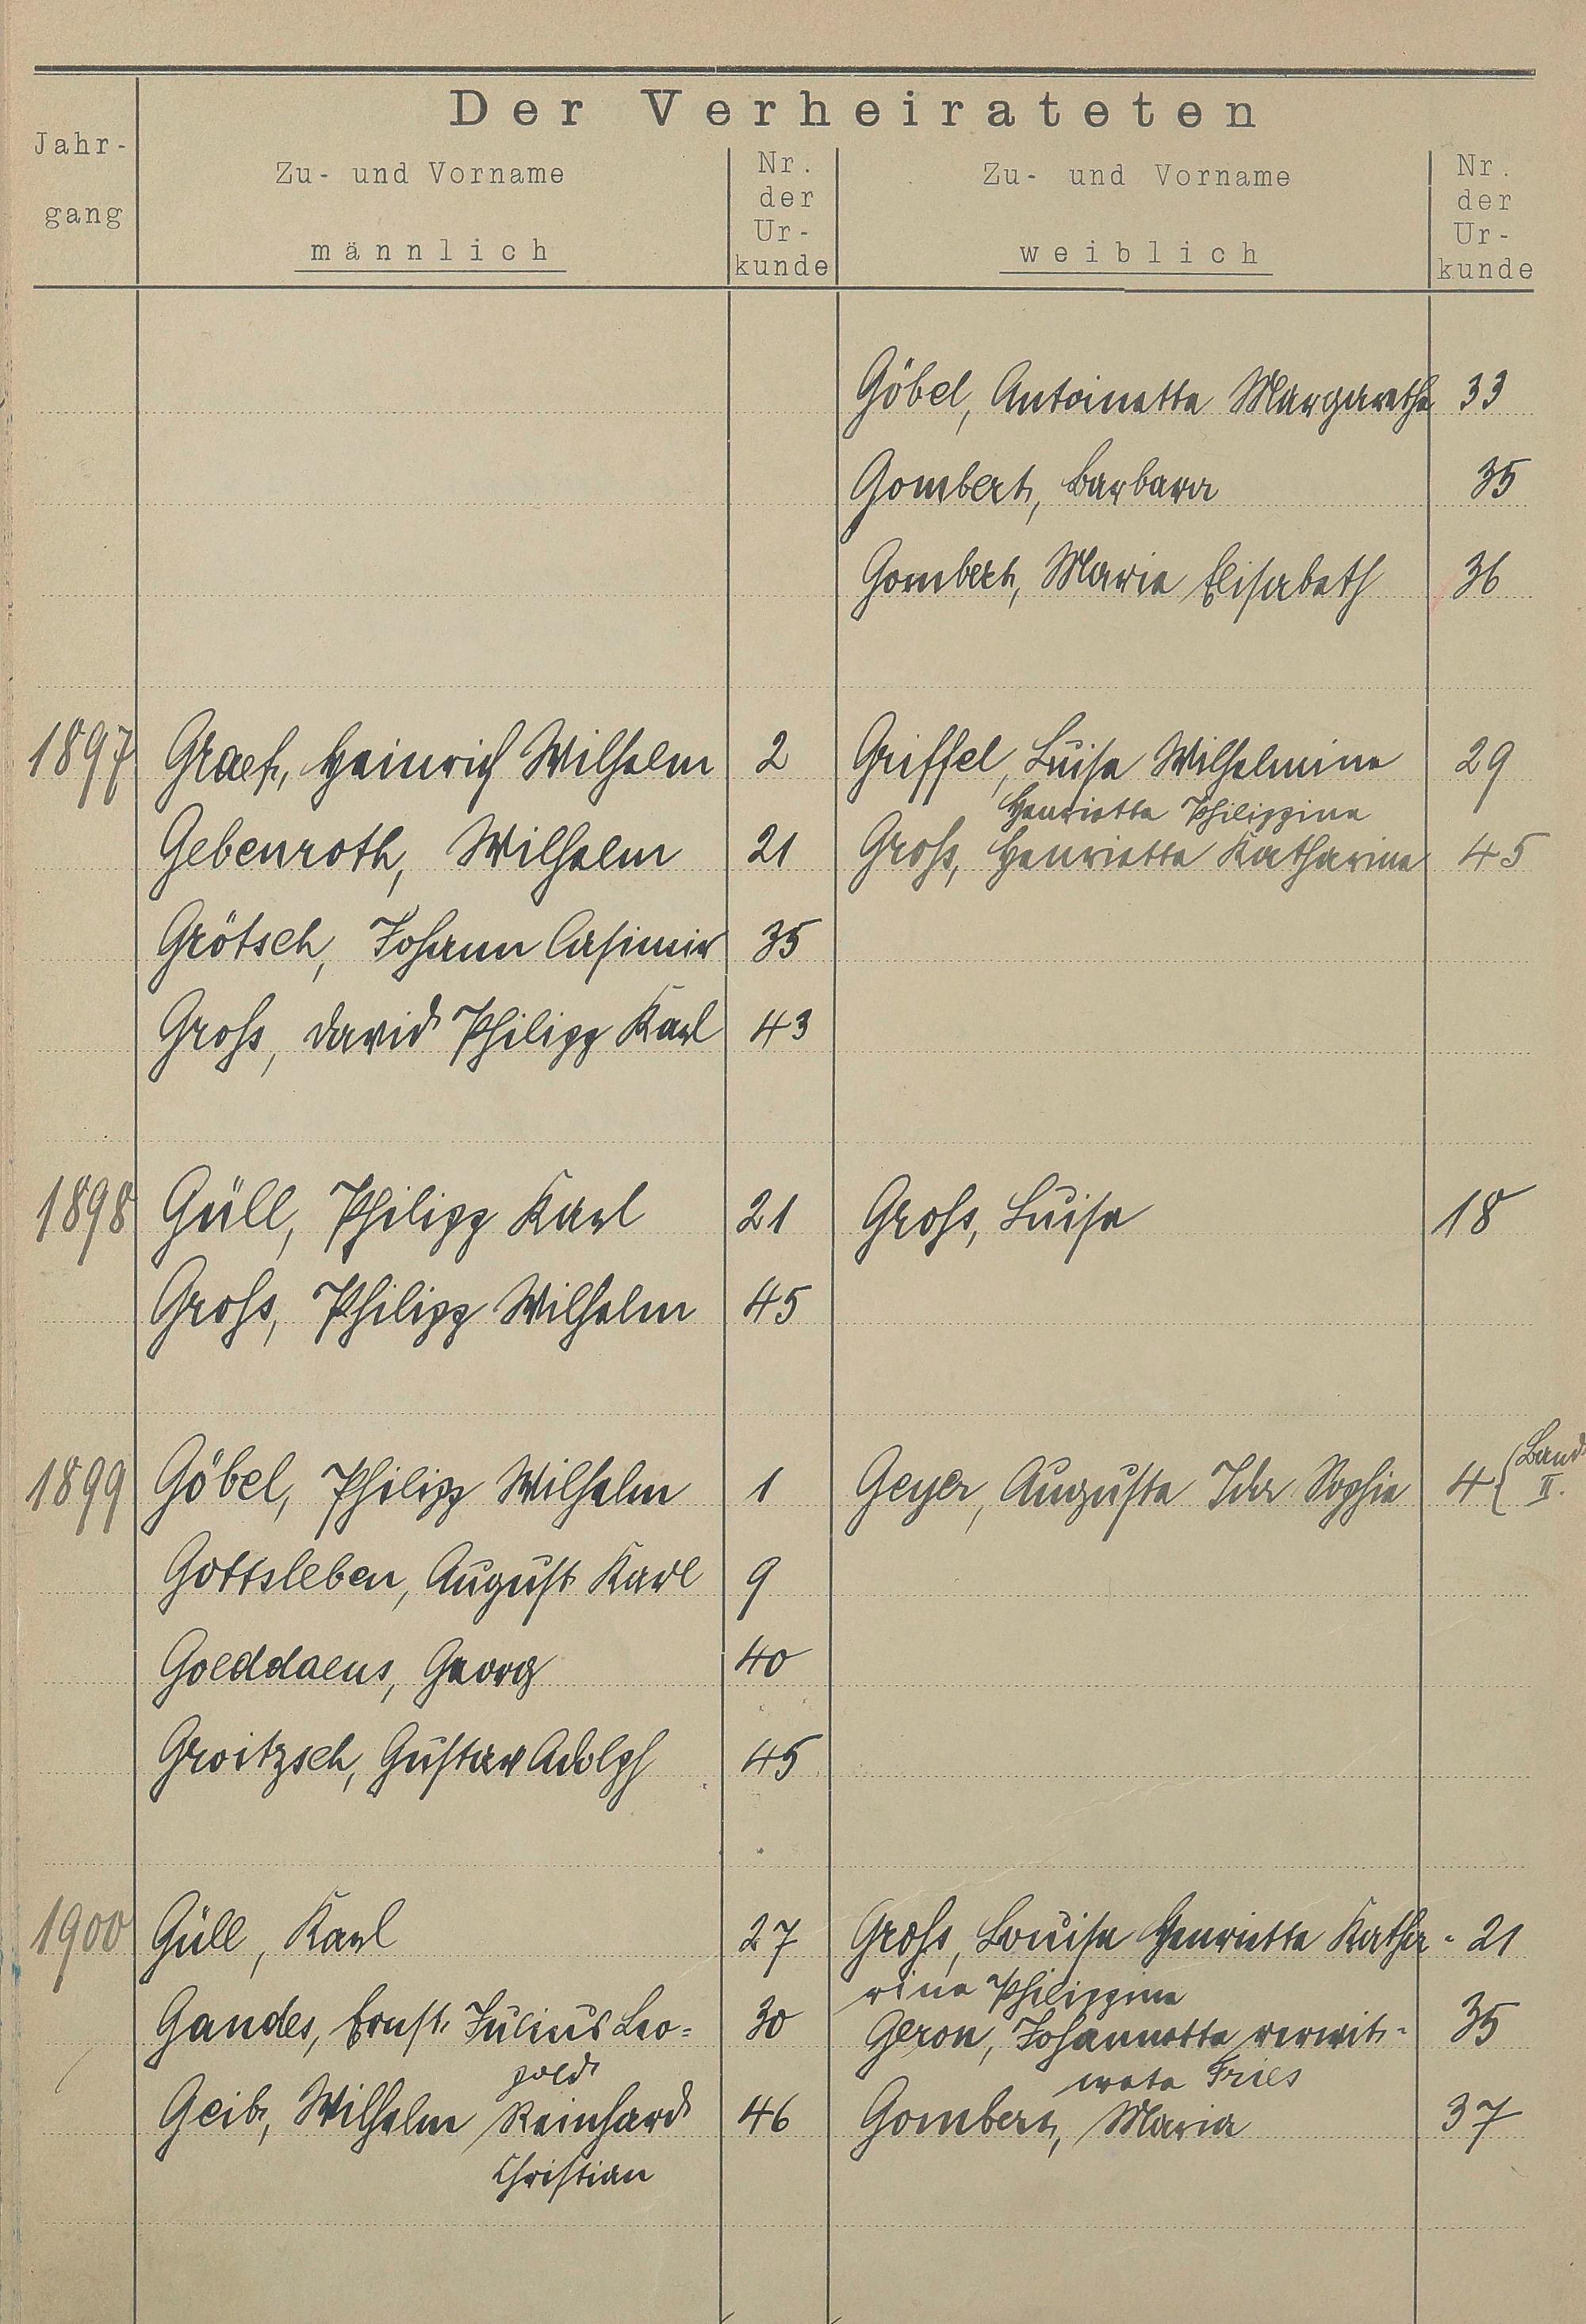 Der Verheirateten
Jahr-
gang
Zu- und Vorname
männlich
Nr.
der
Ur-
kunde
Zu- und Vorname
weiblich
Nr.
der
Ur-
kunde
Göbel, Antoinette Margarethe 33
Gombert, Barbara 35
Gombert, Marie Elisabeth 36
1897 Graef, Heinrich Wilhelm 2 Griffel, Luise Wilhelmine 29
Henriette Philippine
Gebenroth, Wilhelm 21 Groß, Henriette Katharine 45
Grötsch, Johann Casimir 35
Groß, David Philipp Karl 43
1898 Güll, Philipp Karl 21 Groß, Luise 18
Groß, Philipp Wilhelm 45
1899 Göbel, Philipp Wilhelm 1 Geyer, Auguste Ida Sophie 4 { Band
II.
Gottsleben, August Karl 9
Goeddaeus, Georg 40
Groitzsch, Gustav Adolph 45
1900 Güll, Karl 27 Groß, Louise Henriette Katha- 21
rine Philippine
Gandes, Ernst Julius Leo= 30 Geron, Johannette verwit- 35
pold wete Fries
Geib, Wilhelm Reinhard 46 Gombert, Maria 37
Christian